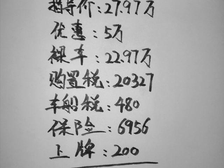 指导价:27.97万
优惠:5万
裸车:22.97万
购置税:20327
车船税:480
保险:6956
上牌:200